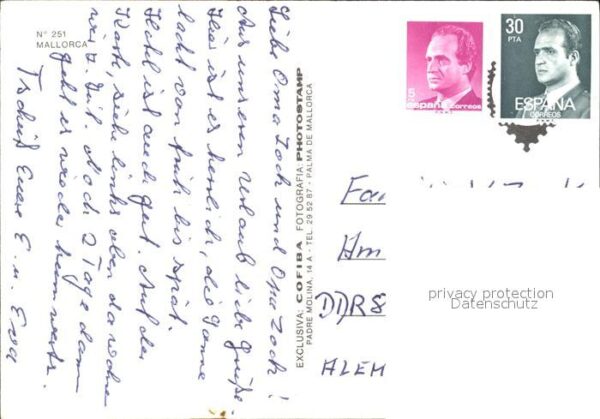 N° 251
MALLORCA
Liebe Oma Zoch und Opa Zoch!
Aus unseren Urlaub liebe Grüße.
Hier ist es herrlich, die Sonne
lacht von früh bis spät.
Hotel ist auch gut. Auf der
Karte, siehe links oben da wohnen
wir z. Zeit. Noch 2 Tage dann
geht es wieder heimwärts.
Tschüß Euere E. u. Eva
EXCLUSIVA: COFIBA FOTOGRAFIA: PHOTOSTAMP
PADRE MOLINA, 14 A - TEL. 29 52 87 - PALMA DE MALLORCA
5
españa correos
30
PTA
ESPAÑA
CORREOS
Fa
Am
DDR8
ALEM
privacy protection
Datenschutz